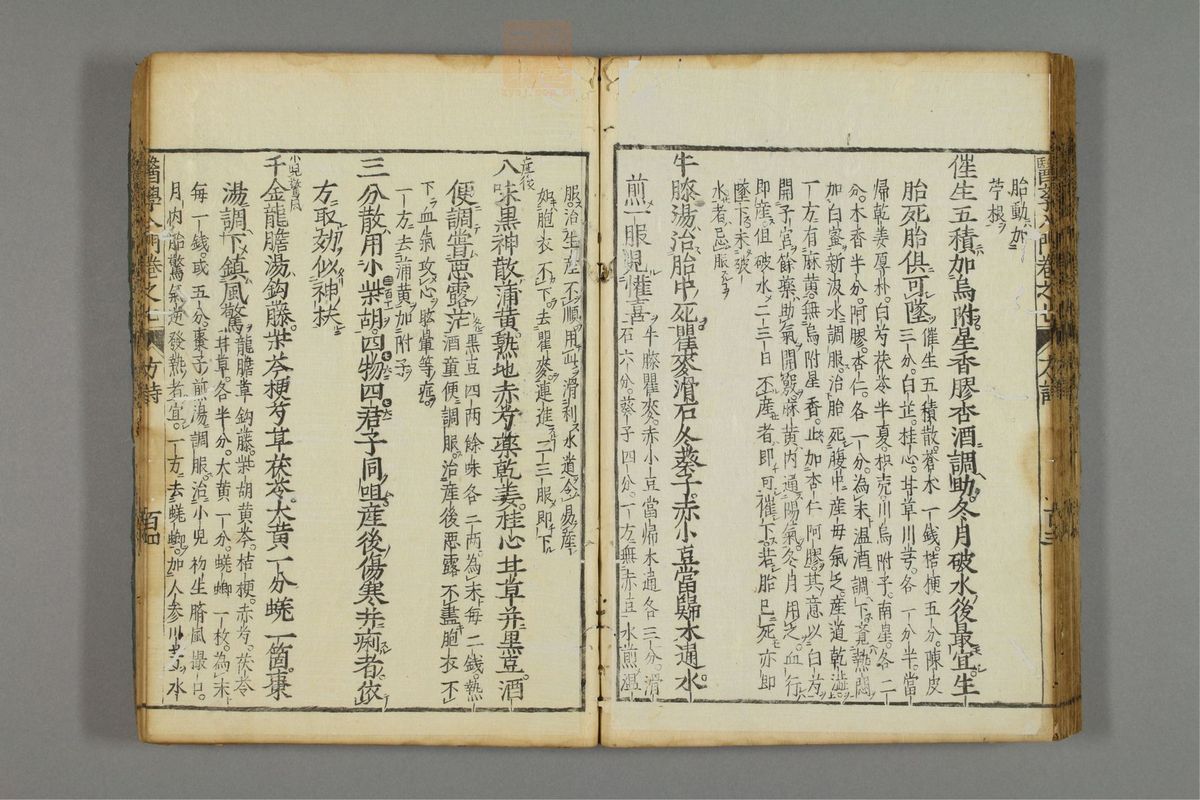 胎動加
苧根
催生五積加烏附星香膠杏酒調助冬月破水後最宜生
胎死胎俱可墜
催生五積散蒼朮一錢桔梗五分陳皮
三分白芷桂心甘草川芎各一分半當
歸乾姜厚朴白芍茯苓半夏枳壳川烏附子南星各二
分木香半分阿膠杏仁各一分為末溫酒調下覺熱悶
加白蜜新汲水調服治胎死腹中産母氣乏産道乾澁
一方有麻黄無烏附星香止加杏仁阿膠其意以白芳
開子宮餘藥助氣開竅麻黄内通陽氣冬月用之血行
即産但破水二三日不産者即可催下若胎已死亦即
墜下未破
水者忌服
牛膝湯治胎中死瞿麥滑石冬葵子赤小豆當歸木通水
煎一服見懽喜
牛膝瞿麥赤小豆當帰木通各三分滑
石六分葵子四分一方無赤豆水煎温
服治生産不順用此滑利水道令易産
如胞衣不下去瞿麥連進二三服即下
産後
八味黒神散蒲黄熟地赤芍藥乾姜桂心甘草并黒豆酒
便調嘗悪露茫
黒豆四兩餘味各二兩為末毎二錢熱
酒童便調服治産後悪露不盡胞衣不
下血氣攻心脹暈等症
一方去蒲黄加附子
三分散用小柴胡四物四君子同咀産後傷寒并痢者依
方取効似神扶
小児驚風
千金龍膽湯鈎藤柴芩梗芍草茯苓大黄一分蜣一箇棗
湯調下鎮風驚
龍膽草鈎藤柴胡黄芩桔梗赤芍茯苓
甘草各半分大黄一分蜣蜋一枚為末
毎一錢或五分棗子前湯調服治小児初生臍風撮口
月内胎驚氣逆發熱者宜一方去蜣蜋加人参川芎水
醫學入門卷之七
方詩
百四